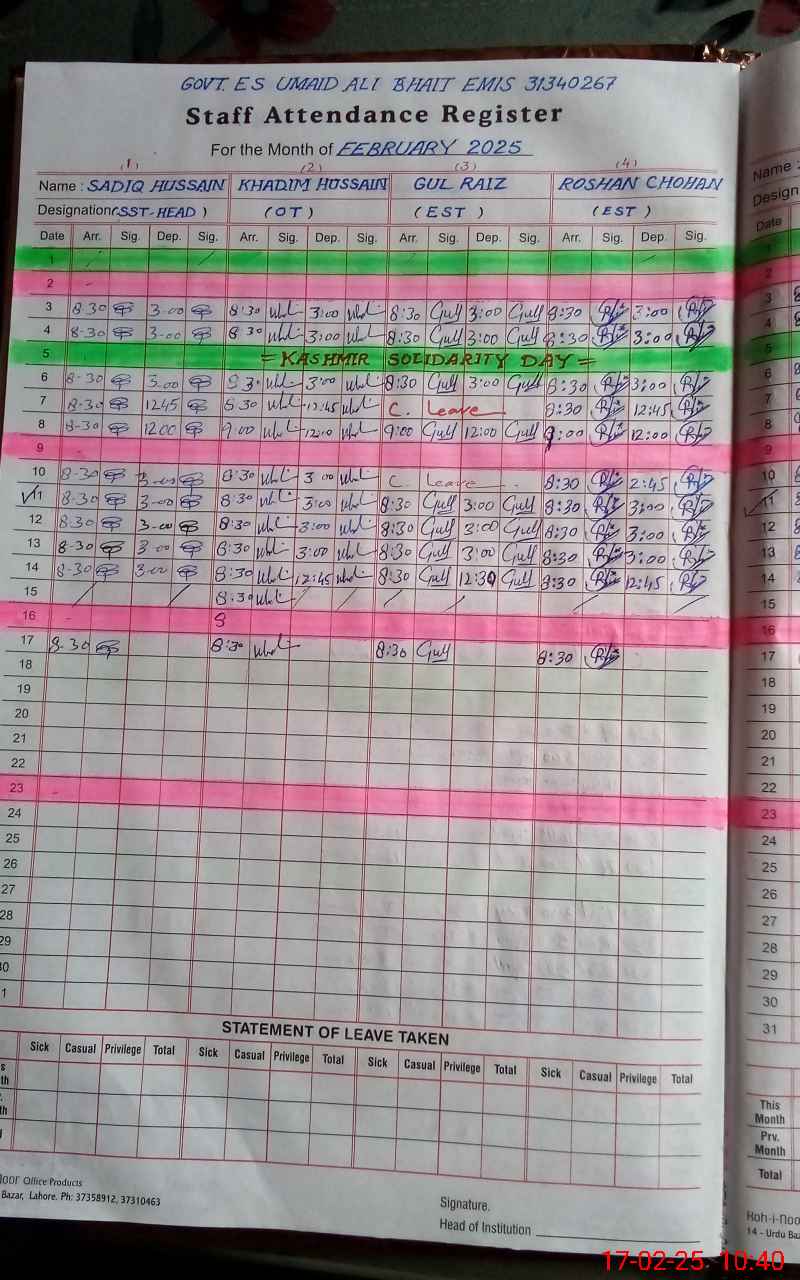 GOVT. ES UMAID ALI BHAIT EMIS 31340267
Staff Attendance Register
For the Month of FEBRUARY 2025
(1) (2) (3) (4)
Name : SADIQ HUSSAIN KHADIM HUSSAIN GUL RAIZ ROSHAN CHOHAN Name :
Designation (SST-HEAD) (OT) (EST) (EST)
Date Arr. Sig. Dep. Sig. Arr. Sig. Dep. Sig. Arr. Sig. Dep. Sig. Arr. Sig. Dep. Sig. Date
1
2 2
3 8-30 3-00 8:30 3:00 8:30 Gull 3:00 Gull 8:30 3:00 3
4 8-30 3-00 8:30 3:00 8:30 Gull 3:00 Gull 8:30 3:00 4
5 = KASHMIR SOLIDARITY DAY = 5
6 8-30 3.00 8:30 3:00 8:30 Gull 3:00 Gull 8:30 3:00 6
7 8-30 1245 8:30 12:45 C. Leave 8:30 12:45 7
8 8-30 1200 9:00 12:00 9:00 Gull 12:00 Gull 9:00 12:00 8
9 9
10 8-30 3-00 8:30 3:00 C. Leave 8:30 2:45 10
11 8-30 3-00 8:30 3:00 8:30 Gull 3:00 Gull 8:30 3:00 11
12 8-30 3-00 8:30 3:00 8:30 Gull 3:00 Gull 8:30 3:00 12
13 8-30 3-00 8:30 3:00 8:30 Gull 3:00 Gull 8:30 3:00 13
14 8-30 3-00 8:30 12:45 8:30 Gull 12:30 Gull 8:30 12:45 14
15 8:30 15
16 8 16
17 8-30 8:30 8:30 Gull 8:30 17
18 18
19 19
20 20
21 21
22 22
23 23
24 24
25 25
26 26
27 27
28 28
29 29
30 30
1 31
STATEMENT OF LEAVE TAKEN
Sick Casual Privilege Total Sick Casual Privilege Total Sick Casual Privilege Total Sick Casual Privilege Total
This Month
Prv. Month
Total
Office Products
Bazar, Lahore. Ph: 37358912, 37310463
Signature.
Head of Institution
Koh-i-noor
14 - Urdu Baz
17-02-25. 10:40